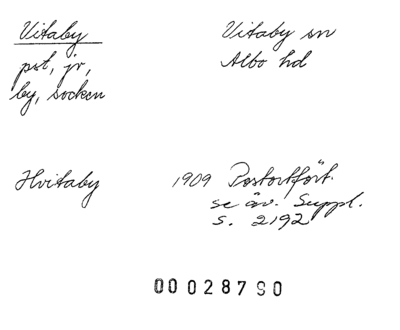 Vitaby
Vitaby sn
pst, jr,
Albo hd
by, socken
Hvitaby
1909 Postortfört.
se äv. Suppl.
s. 2192
00028790